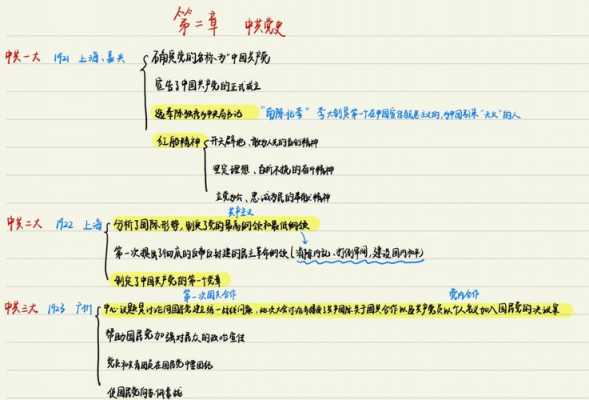 第二章 中共党史
中共一大 1921 上海、嘉兴 确定党的名称为"中国共产党"
宣告了中国共产党的正式成立
选举陈独秀为中央局书记 "南陈北李" 李大钊是第一个在中国宣传马克思主义的,为中国引来"火"的人
红船精神 开天辟地、敢为人先的首创精神
坚定理想、百折不挠的奋斗精神
立党为公、忠诚为民的奉献精神
共产主义
中共二大 1922 上海 分析了国际形势,制定了党的最高纲领和最低纲领
第一次提出了彻底的反帝反封建的民主革命纲领(消除内乱、打倒军阀,建设国内和平)
制定了中国共产党的第一个党章
第一次国共合作 党内合作
中共三大 1923 广州 中心议题是讨论同国民党建立统一战线问题,共产国际关于国共合作以及共产党员以个人名义加入国民党的决议案
帮助国民党加强对民众的政治宣传
在国民党中
使国民党